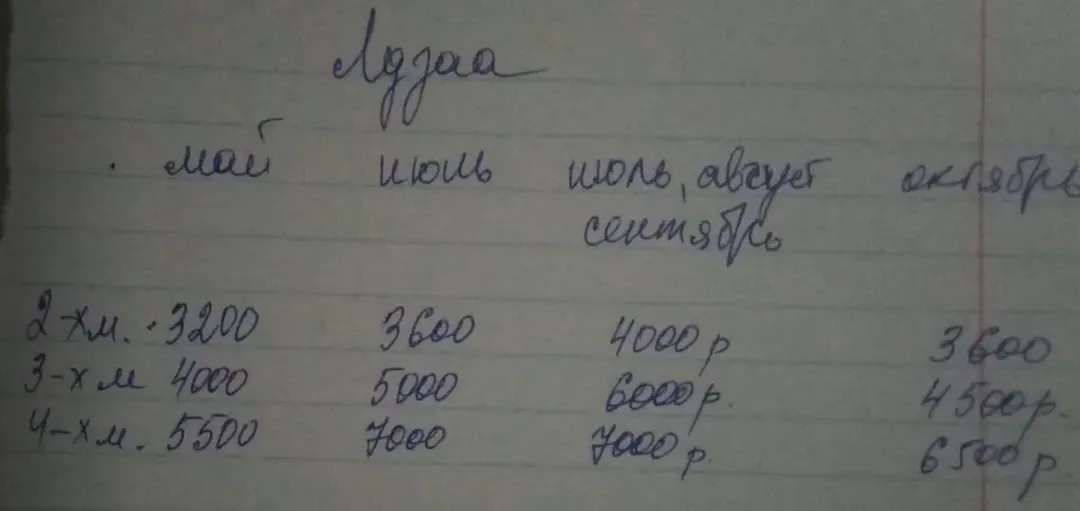 Лдзаа
май июнь июль, август октябрь
сентябрь
2-хм. 3200 3600 4000р 3600
3-хм 4000 5000 6000р. 4500р.
4-хм. 5500 7000 7000р. 6500р.